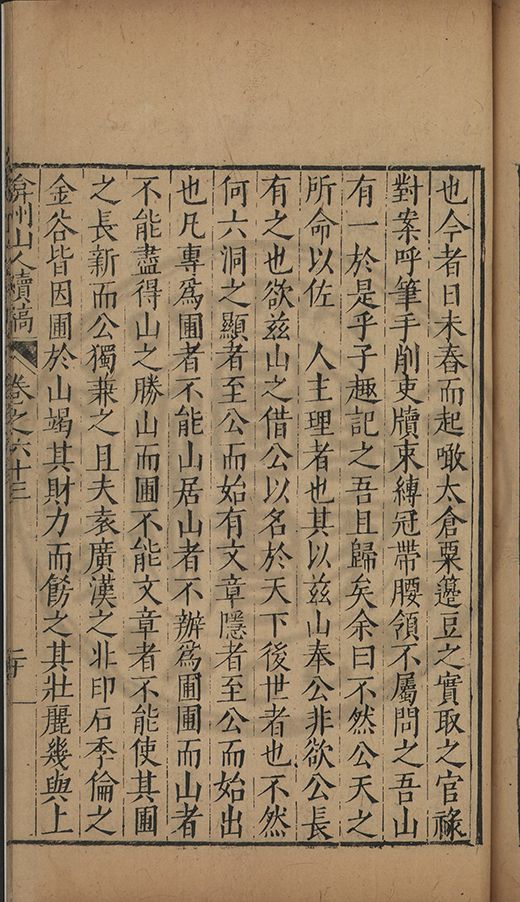 也今者日未舂而起噉太倉粟籩豆之實取之官祿
對案呼筆手削吏牘束縛冠帶腰領不屬問之吾山
有一於是乎子趣記之吾且歸矣余曰不然公天之
所命以佐　人主理者也其以茲山奉公非欲公長
有之也欲茲山之借公以名於天下後世者也不然
何六洞之顯者至公而始有文章隱者至公而始出
也凡專為圃者不能山居山者不辦為圃圃而山者
不能盡得山之勝山而圃不能文章者不能使其圃
之長新而公獨兼之且夫袁廣漢之北卬石季倫之
金谷皆因圃於山竭其財力而餝之其壯麗幾與上
弇州山人續稿　卷之六十三　二十